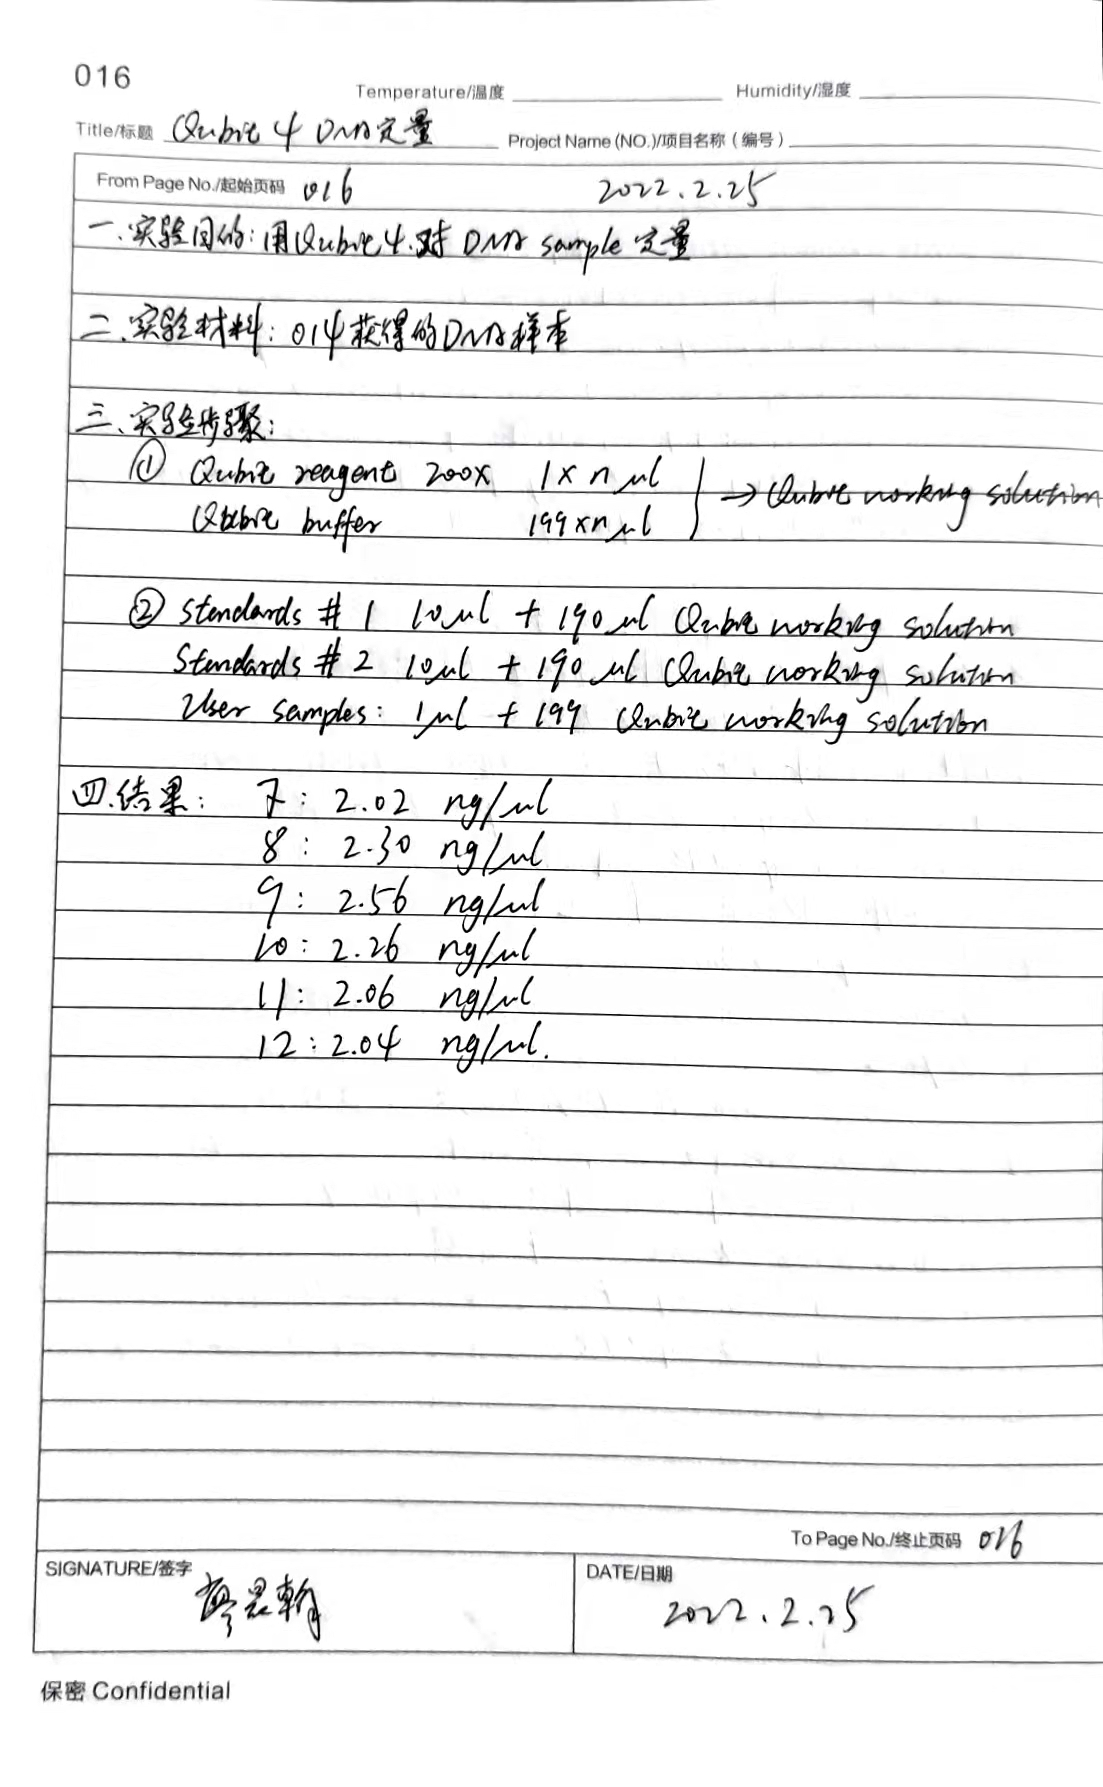 016
Temperature/温度 Humidity/湿度
Title/标题 Qubit 4 DNA定量 Project Name (NO.)/项目名称（编号）
From Page No./起始页码 016 2022.2.25
一.实验目的：用Qubit 4.对 DNA sample 定量
二.实验材料：014获得的DNA样本
三.实验步骤：
① Qubit reagent 200X 1×n μl
Qubit buffer 199×n μl
→ Qubit working solution
② Standards # 1 10μl + 190 μl Qubit working solution
Standards # 2 10μl + 190 μl Qubit working solution
User samples: 1μl + 199 Qubit working solution
四.结果： 7: 2.02 ng/μl
8: 2.30 ng/μl
9: 2.56 ng/μl
10: 2.26 ng/μl
11: 2.06 ng/μl
12: 2.04 ng/μl.
To Page No./终止页码 016
SIGNATURE/签字 DATE/日期
2022.2.25
保密 Confidential